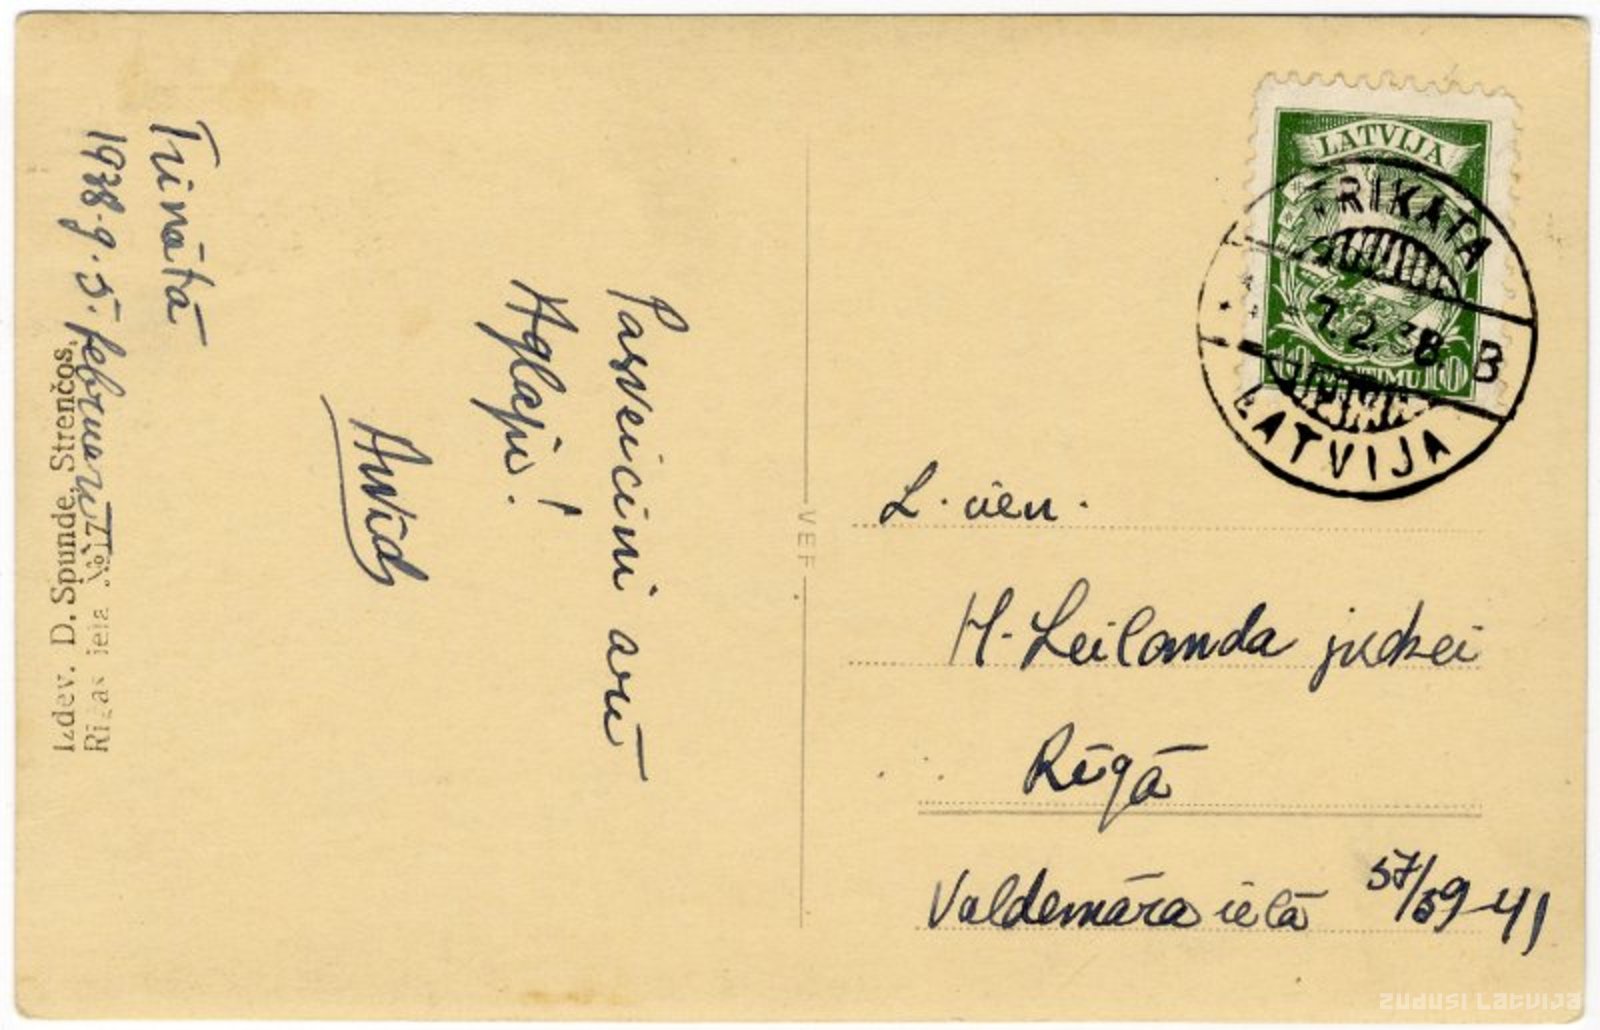 Pasveicini arī
Aglaju!
Arvīd
Trikātā
1938.g. 5. februārī
Izdev. D. Spunde, Strenčos,
Rīgas ielā №17
VEF
LATVIJA
10 SANTIMU 10
TRIKATA
7.2.38 B
LATVIJA
L. cien.
H. Leilanda jkdzei
Rīgā
Valdemāra ielā 57/59-41
zudusi Latvija